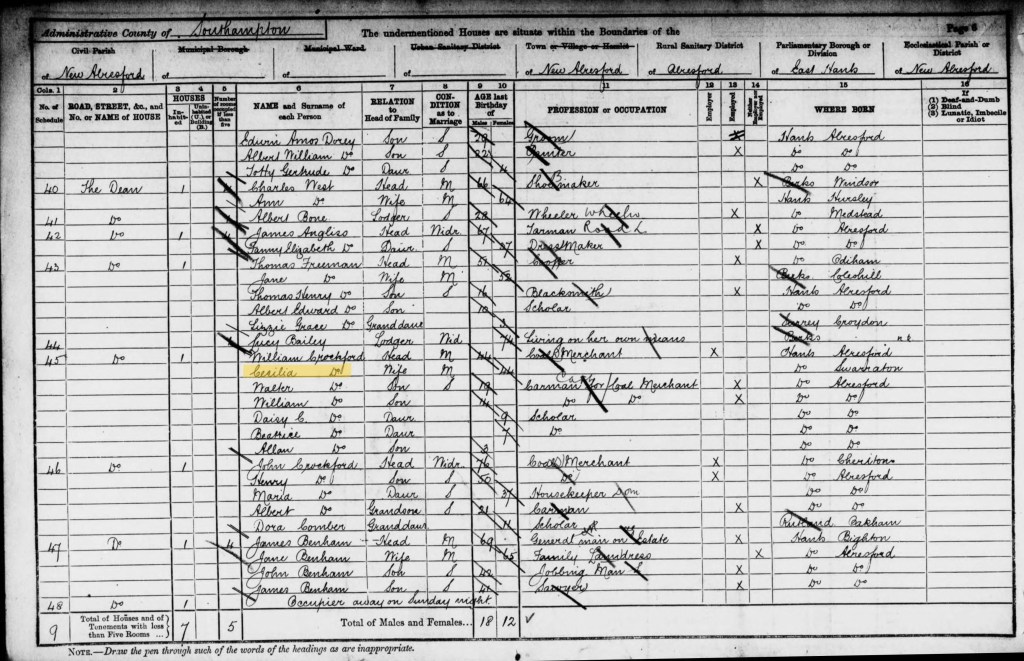 Administrative County of Southampton The undermentioned Houses are situate within the Boundaries of the Page 6
Civil Parish Municipal Borough Municipal Ward Urban Sanitary District Town or Village or Hamlet Rural Sanitary District Parliamentary Borough or Division Ecclesiastical Parish or District
of New Alresford of of of of New Alresford of Alresford of East Hants of New Alresford
Cols. 1 2 3 4 5 6 7 8 9 10 11 12 13 14 15 16
No. of Schedule ROAD, STREET, &c., and No. or NAME of HOUSE HOUSES Inhabited Uninhabited (U.) or Building (B.) Number of rooms occupied if less than five NAME and Surname of each Person RELATION to Head of Family CONDITION as to Marriage AGE last Birthday of Males Females PROFESSION or OCCUPATION Employer Employed Neither Employer nor Employed WHERE BORN If (1) Deaf-and-Dumb (2) Blind (3) Lunatic, Imbecile or Idiot
Edwin Amos Dorey Son S 29 Groom X Hants Alresford
Albert William Do Son S 22 X Do Do
Totty Gertrude Do Daur S Do Do
40 The Dean 1 4 Charles West Head M 66 Shoemaker X Berks Windsor
Ann Do Wife M 64 Hants Hursley
41 Do Albert Bone Lodger S 28 Wheeler Wheelrs X Do Medstead
42 Do 1 4 James Angliss Head Widr 67 Carman Road L X Do Alresford
Fanny Elizabeth Do Daur S 27 Dress Maker X Do Do
43 Do 1 Thomas Freeman Head M 51 Cooper X Do Odiham
Jane Do Wife M 52 Berks Coleshill
Thomas Henry Do Son S 16 Blacksmith X Hants Alresford
Albert Edward Do Son 10 Scholar Do Do
Lizzie Grace Do Granddaur 3 Surrey Croydon
44 Lucy Bailey Lodger Wid 74 Living on her own means Berks n.k.
45 Do 1 William Crockford Head M 44 Coal Merchant X Hants Alresford
Cecilia Do Wife M 44 Do Swarraton
Walter Do Son S 19 Carman for Coal Merchant X Do Alresford
William Do Son 14 Do Do X Do Do
Daisy C. Do Daur 9 Scholar Do Do
Beatrice Do Daur 7 Do Do Do
Allan Do Son 3 Do Do
46 Do 1 John Crockford Head Widr 76 Coal Merchant X Do Cheriton
Henry Do Son S 50 Do X Do Alresford
Maria Do Daur S 37 Housekeeper Dom Do Do
Albert Do Grandson S 21 Carman X Do Do
Dora Comber Granddaur 11 Scholar Rutland Oakham
47 Do 1 4 James Benham Head M 69 General man on Estate X Hants Bighton
Jane Benham Wife M 65 Family Laundress X Do Alresford
John Benham Son S 42 Jobbing Man X Do Do
James Benham Son S 41 Sawyer X Do Do
48 Do 1 Occupier away on Sunday night
9 Total of Houses and of Tenements with less than Five Rooms ... 7 5 Total of Males and Females... 18 12
NOTE.—Draw the pen through such of the words of the headings as are inappropriate.